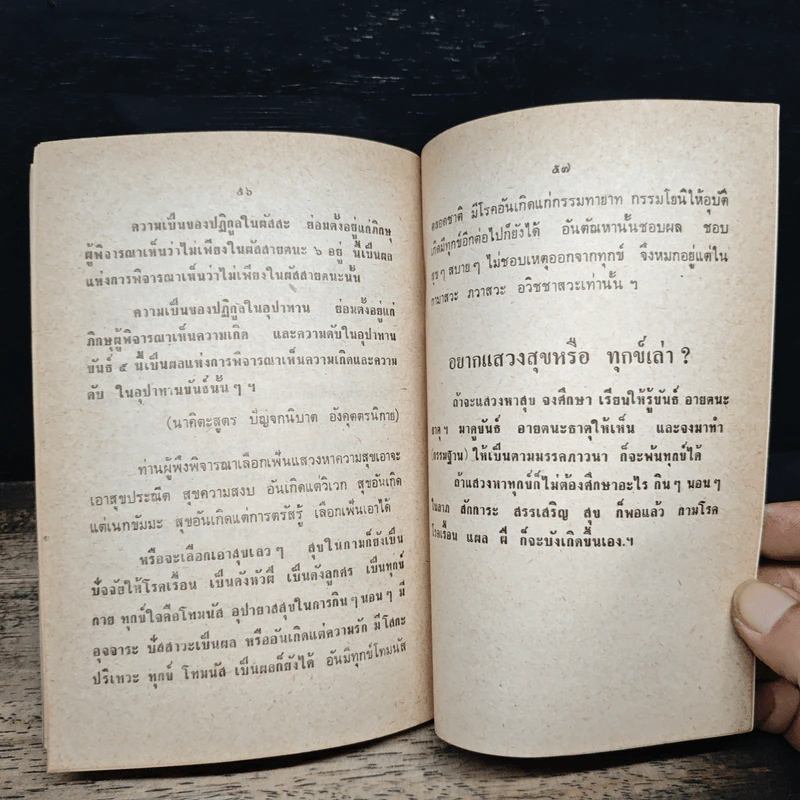 ๕๖
ความเป็นของปฏิกูลในผัสสะ ย่อมตั้งอยู่แก่ภิกษุ
ผู้พิจารณาเห็นว่าไม่เที่ยงในผัสสายตนะ ๖ อยู่ นี้เป็นผล
แห่งการพิจารณาเห็นว่าไม่เที่ยงในผัสสายตนะนั้น
ความเป็นของปฏิกูลในอุปาทาน ย่อมตั้งอยู่แก่
ภิกษุผู้พิจารณาเห็นความเกิด และความดับในอุปาทาน
ขันธ์ ๕ นี้เป็นผลแห่งการพิจารณาเห็นความเกิดและความ
ดับ ในอุปาทานขันธ์นั้น ๆ ฯ
(นาคิตะสูตร ปัญจกนิบาต อังคุตตรนิกาย)
ท่านผู้พึงพิจารณาเลือกเฟ้นแสวงหาความสุขเอาจะ
เอาสุขประณีต สุขความสงบ อันเกิดแต่วิเวก สุขอันเกิด
แต่เนกขัมมะ สุขอันเกิดแต่การตรัสรู้ เลือกเฟ้นเอาได้
หรือจะเลือกเอาสุขเลว ๆ สุขในกามก็ยังเป็น
ปัจจัยให้โรคเรื้อน เป็นดังหัวฝี เป็นดังลูกศร เป็นทุกข์
กาย ทุกข์ใจคือโทมนัส อุปายาสสุขในการกิน ๆ นอน ๆ มี
อุจจาระ ปัสสาวะเป็นผล หรืออันเกิดแต่ความรัก มีโสกะ
ปริเทวะ ทุกข์ โทมนัส เป็นผลก็ยังได้ อันมีทุกข์โทมนัส
๕๗
ตลอดชาติ มีโรคอันเกิดแก่กรรมทายาท กรรมโยนิให้อุบัติ
เกิดมีทุกข์อีกต่อไปก็ยังได้ อันตัณหานั้นชอบผล ชอบ
สุข ๆ สบาย ๆ ไม่ชอบเหตุออกจากทุกข์ จึงหมกอยู่แต่ใน
กามาสวะ ภวาสวะ อวิชชาสวะเท่านั้น ฯ
อยากแสวงสุขหรือ ทุกข์เล่า ?
ถ้าจะแสวงหาสุข จงศึกษา เรียนให้รู้ขันธ์ อายตนะ
ธาตุฯ มาดูขันธ์ อายตนะธาตุให้เห็น และจงมาทำ
(กรรมฐาน) ให้เป็นตามมรรคภาวนา ก็จะพ้นทุกข์ได้
ถ้าแสวงหาทุกข์ก็ไม่ต้องศึกษาอะไร กิน ๆ นอน ๆ
ในลาภ สักการะ สรรเสริญ สุข ก็พอแล้ว กามโรค
โรคเรื้อน แผล ฝี ก็จะบังเกิดขึ้นเอง.ฯ